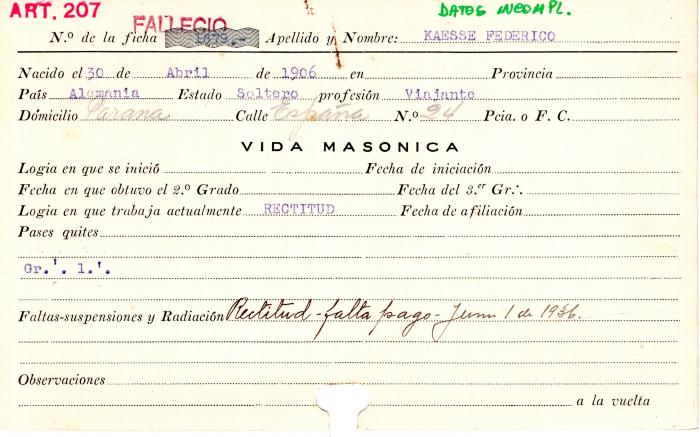 ART. 207 FALLECIO DATOS INCOMPL.
N.º de la ficha 1679.- Apellido y Nombre: KAESSE FEDERICO
Nacido el 30 de Abril de 1906 en Provincia
País Alemania Estado Soltero profesión Viajante
Domicilio Parana Calle España N.º 24 Pcia. o F. C.
VIDA MASONICA
Logia en que se inició Fecha de iniciación
Fecha en que obtuvo el 2.º Grado Fecha del 3.er Gr∴
Logia en que trabaja actualmente RECTITUD Fecha de afiliación
Pases quites
Gr.'. 1.'.
Faltas-suspensiones y Radiación Rectitud - falta pago - 1 de 1936.
Observaciones
a la vuelta